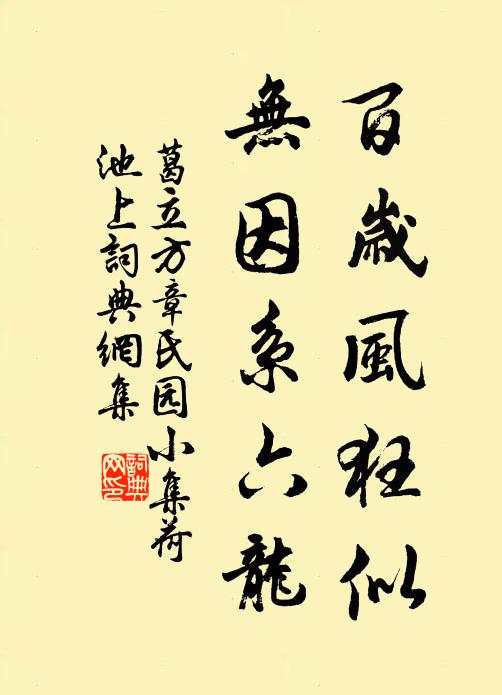 百歲風狂似
無因系六龍
葛立方章民园小集荷
池上詞典網集
詞典网印